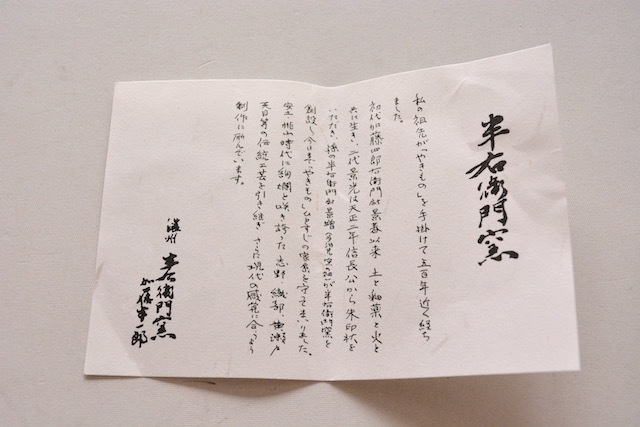 半右衛門窯
私の祖先が「やきもの」を手掛けて五百年近く経ち
ました。
初代加藤四郎右衛門景春以来 土と釉薬と火と
共に生き、二代景光は天正二年信長公から朱印状を
いただき、孫の半右衛門景増が半右衛門窯を
創設し今日まで、やきもの一すじの家系を守て参りました。
安土桃山時代に絢爛と咲き誇った志野、織部、黄瀬戸
天目等の伝統工芸を引き継ぎ さらに現代の感覚に合うよう
制作に励んでいます。
濃州 半右衛門窯
加藤幸一郎